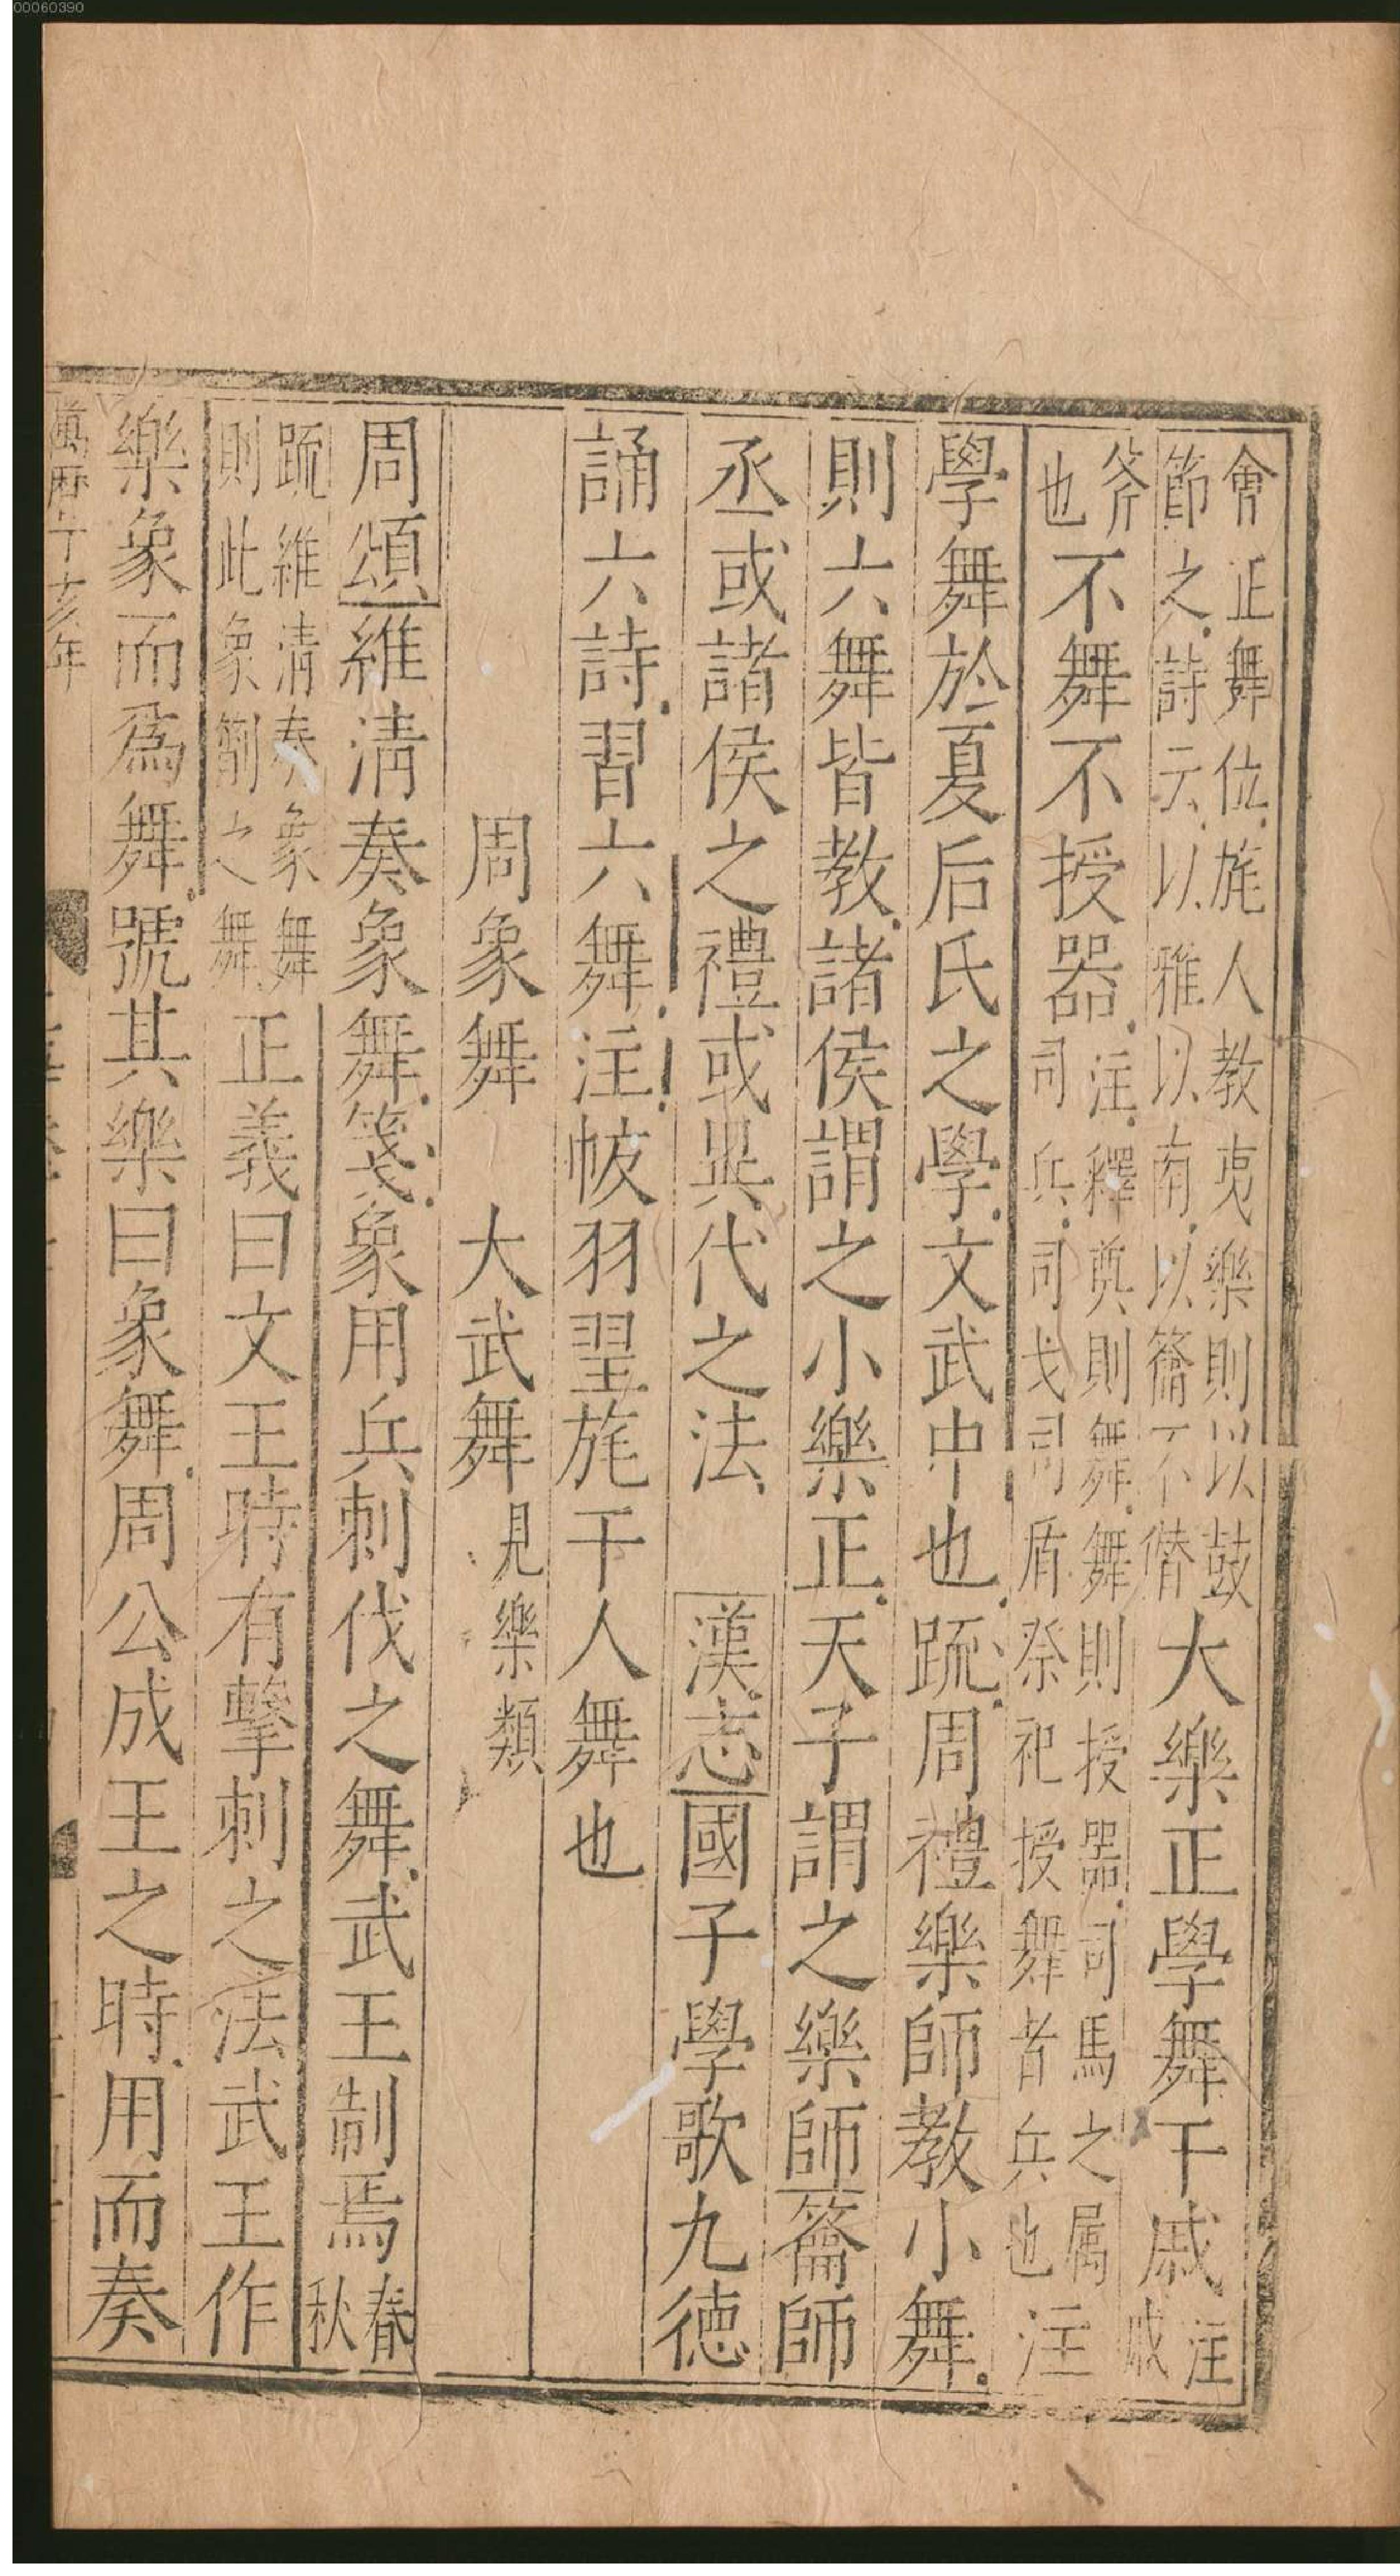 00060390
會正舞位旄人教夷樂則以鼓
節之詩云以雅以南以籥不僭大樂正學舞干戚注
戚
斧
也不舞不授器注釋奠則舞舞則授器司馬之属
司兵司戈司盾祭祀授舞者兵也注
學舞於夏后氏之學文武中也䟽周禮樂師教小舞
則六舞皆教諸侯謂之小樂正天子謂之樂師籥師
丞或諸侯之禮或異代之法 漢志國子學歌九徳
誦六詩習六舞注帗羽翌旄干人舞也
周象舞 大武舞見樂類
周頌維淸奏象舞箋象用兵刺伐之舞武王制焉春
秋
䟽維淸奏象舞
則此象箾之舞正義曰文王時有擊刺之法武王作
樂象而爲舞號其樂曰象舞周公成王之時用而奏
萬曆丁亥年